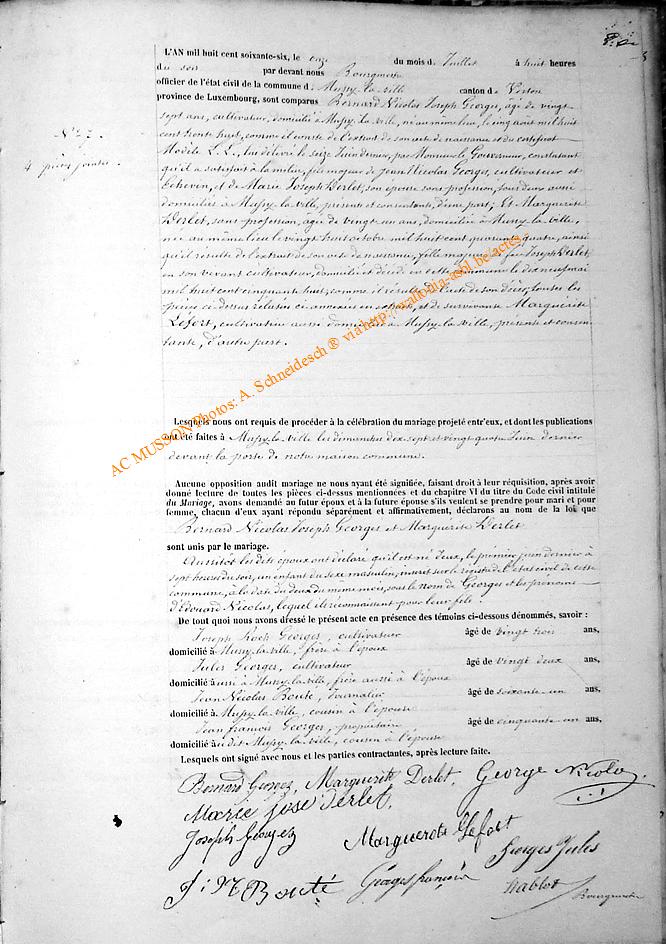 L'AN mil huit cent soixante-six, le onze du mois d Juillet à huit heures
du soir par devant nous Bourgmestre
officier de l'état civil de la commune d Mussy-la-ville canton d Virton
province de Luxembourg, sont comparus Bernard Nicolas Joseph Georges, âgé de vingt
sept ans, cultivateur, domicilié à Mussy-la-ville, né au même lieu, le cinq août mil huit
N° 27.
cent trente huit, comme il conste de l'extrait de son acte de naissance et du certificat
Modèle L.L., lui délivré le seize Juin dernier, par Monsieur le Gouverneur, constatant
4 pièces jointes.
qu'il a satisfait à la milice, fils majeur de Jean Nicolas Georges, cultivateur et
échevin, et de Marie Joseph Derlet, son épouse sans profession, tous deux aussi
domiciliés à Mussy-la-ville, présents et consentants, d'une part; Et Marguerite
Derlet, sans profession, âgée de vingt un ans, domiciliée à Mussy-la-ville,
née au même lieu le vingt huit octobre mil huit cent quarante quatre, ainsi
qu'il résulte de l'extrait de son acte de naissance, fille majeure de feu Joseph Derlet,
en son vivant cultivateur, domicilié et décédé en cette commune le dix neuf mai
mil huit cent cinquante huit, comme il résulte de l'acte de son décès, toutes les
pièces ci-dessus relatées ci-annexées en extraits, et de survivante Marguerite
Lefort, cultivateur aussi domiciliée à Mussy-la-ville, présente et consen-
tante, d'autre part.
AC MUSSON Photos: A. Schneidesch ® via http://wallonia-asbl.be/actes
Lesquels nous ont requis de procéder à la célébration du mariage projeté entr'eux, et dont les publications
ont été faites à Mussy-la-ville les dimanches dix sept et vingt quatre Juin dernier
devant la porte de notre maison commune.
Aucune opposition audit mariage ne nous ayant été signifiée, faisant droit à leur réquisition, après avoir
donné lecture de toutes les pièces ci-dessus mentionnées et du chapitre VI du titre du Code civil intitulé
du Mariage, avons demandé au futur époux et à la future épouse s'ils veulent se prendre pour mari et pour
femme, chacun d'eux ayant répondu séparément et affirmativement, déclarons au nom de la loi que
Bernard Nicolas Joseph Georges et Marguerite Derlet
sont unis par le mariage.
Aussitôt les dits époux ont déclaré qu'il est né d'eux, le premier juin dernier à
sept heures du soir, un enfant du sexe masculin, inscrit sur le registre de l'état civil de cette
commune, à la date du deux du même mois, sous le nom de Georges et les prénoms
d'Edouard Nicolas, lequel ils reconnaissent pour leur fils.
De tout quoi nous avons dressé le présent acte en présence des témoins ci-dessous dénommés, savoir :
Joseph Roch Georges, cultivateur âgé de vingt trois ans,
domicilié à Mussy-la-ville, frère à l'époux
Jules Georges, cultivateur âgé de vingt deux ans,
domicilié aussi à Mussy-la-ville, frère aussi à l'époux
Jean Nicolas Bouté, journalier âgé de soixante-un ans,
domicilié à Mussy-la-ville, cousin à l'épouse
Jean François Georges, propriétaire âgé de cinquante un ans,
domicilié audit Mussy-la-ville, cousin à l'épouse
Lesquels ont signé avec nous et les parties contractantes, après lecture faite.
Bernard Georges, Marguerite Derlet, George Nicolas
Marie jose derlet,
Joseph Georges Marguerote Lefort Georges Jules
J: N Bouté Georges françois Bourgmestre